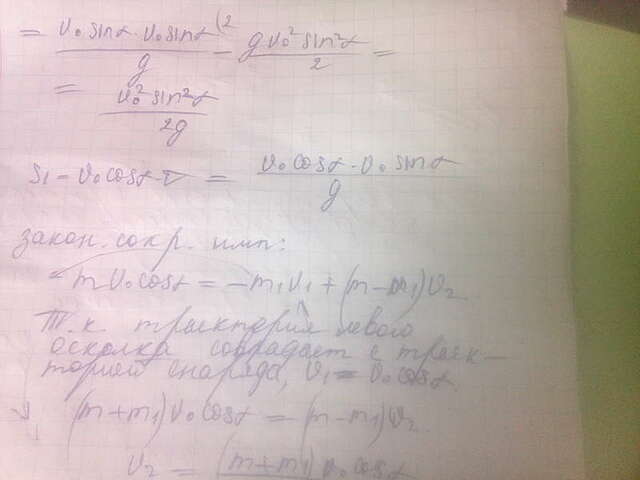 = v₀ sinα · v₀ sinα / g − g v₀² sin²α / 2 =
= v₀² sin²α / 2g
S₁ = v₀ cosα · τ = v₀ cosα · v₀ sinα / g
закон. сохр. имп:
m v₀ cosα = −m₁v₁ + (m − m₁)v₂
Т.к. траектория левого
осколка совпадает с траек-
торией снаряда, v₁ = v₀ cosα.
(m + m₁) v₀ cosα = (m − m₁)v₂
v₂ = (m + m₁) v₀ cosα